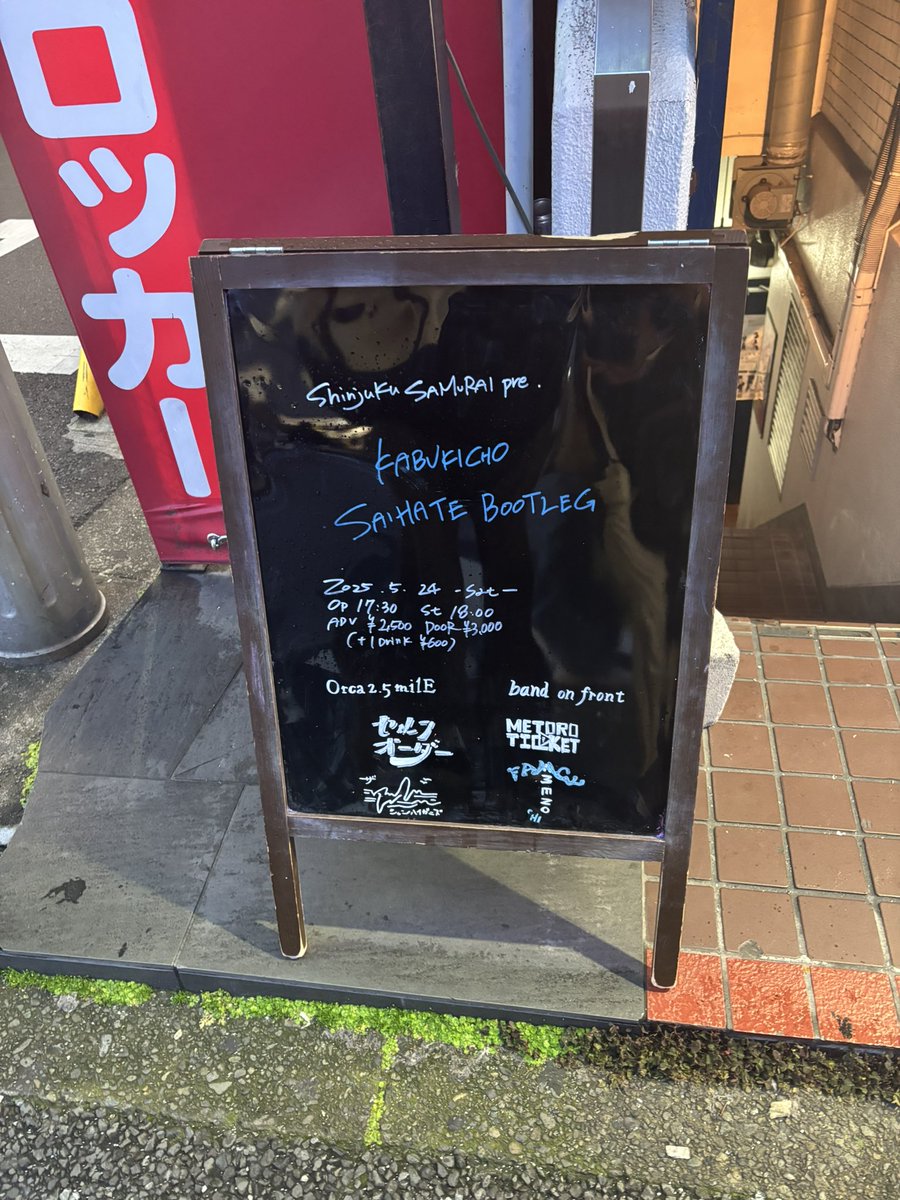 ロッカー
Shinjuku SAMURAI pre.
KABUKICHO
SAiHATE BOOTLEG
2025.5.24 -Sat-
OP 17:30 St 18:00
ADV ¥2,500 DOOR ¥3,000
(+1Drink ¥600)
Orca2.5milE
band on front
セルフ
オーダー
METORO
TICKET
ザ
MENO
'HI